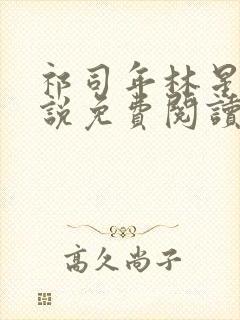 祁司年林星
說免費閱讀
高久尚子